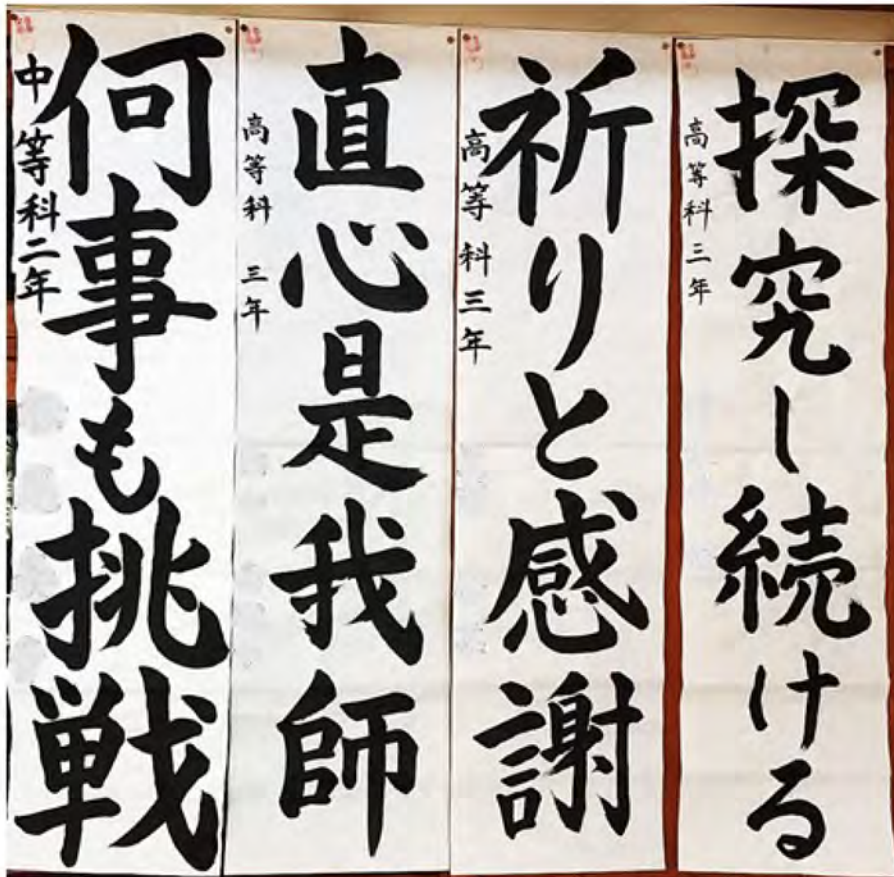 探究し続ける
高等科三年
祈りと感謝
高等科三年
直心是我師
高等科 三年
何事も挑戦
中等科二年